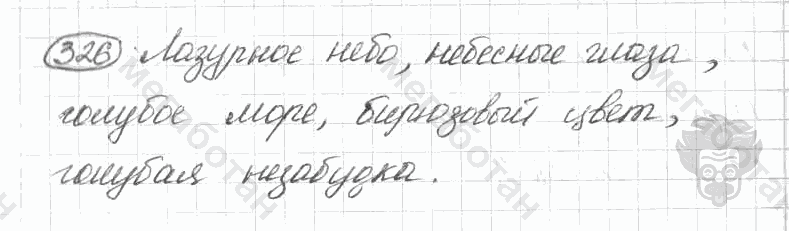 326 Лазурное небо, небесные глаза,
голубое море, бирюзовый цвет,
голубая незабудка.
мегаботан
мегаботан
мегаботан